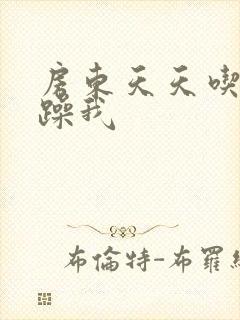 房東天天喫
躁我
布倫特-布羅